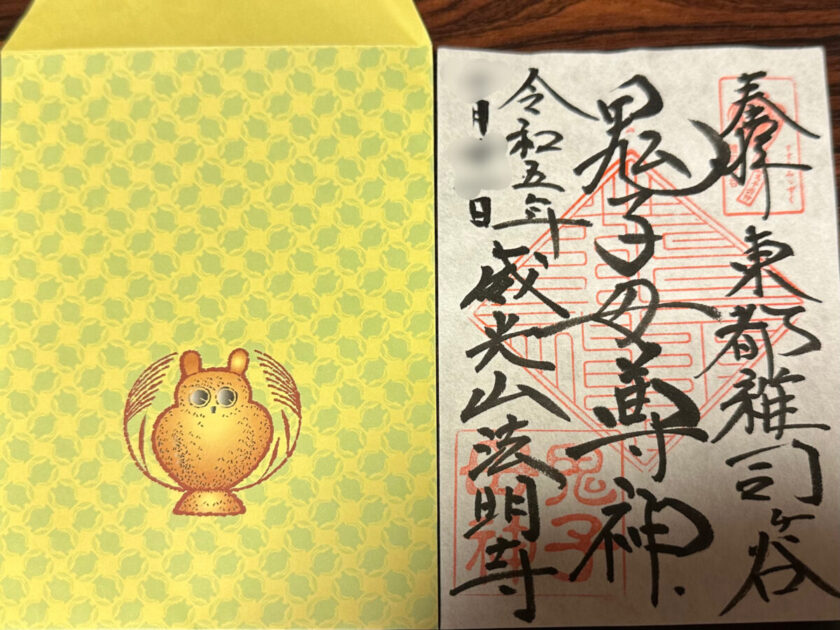 奉拝
東都雑司ヶ谷
鬼子母尊神
令和五年
月
日
威光山法明寺
鬼子
母神